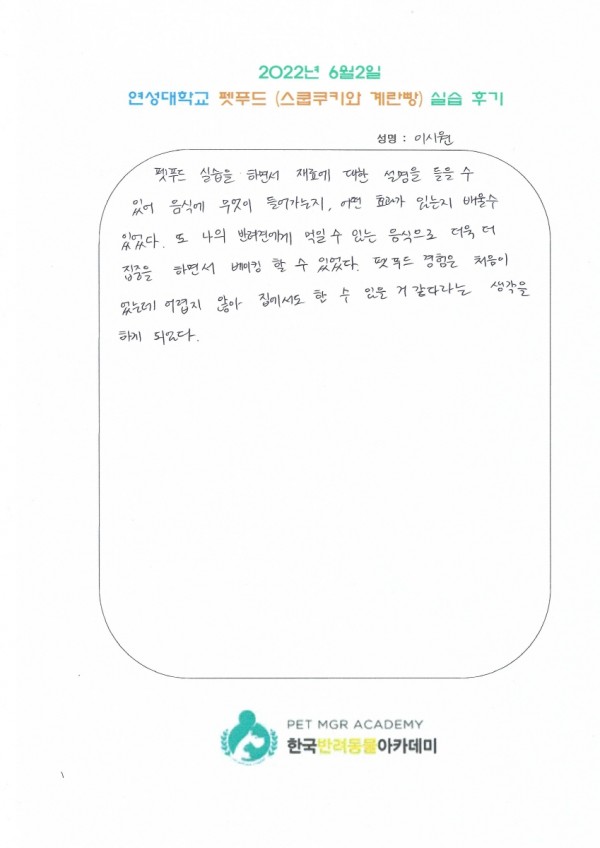 2022년 6월2일
연성대학교 펫푸드 (스콥쿠키와 계란빵) 실습 후기
성명 : 이시원
펫푸드 실습을 하면서 재료에 대한 설명을 들을 수
있어 음식에 무엇이 들어가는지, 어떤 효과가 있는지 배울수
있었다. 또 나의 반려견에게 먹일 수 있는 음식으로 더욱 더
집중을 하면서 베이킹 할 수 있었다. 펫푸드 경험은 처음이
었는데 어렵지 않아 집에서도 할 수 있을 거 같다라는 생각을
하게 되었다.
PET MGR ACADEMY
한국반려동물아카데미